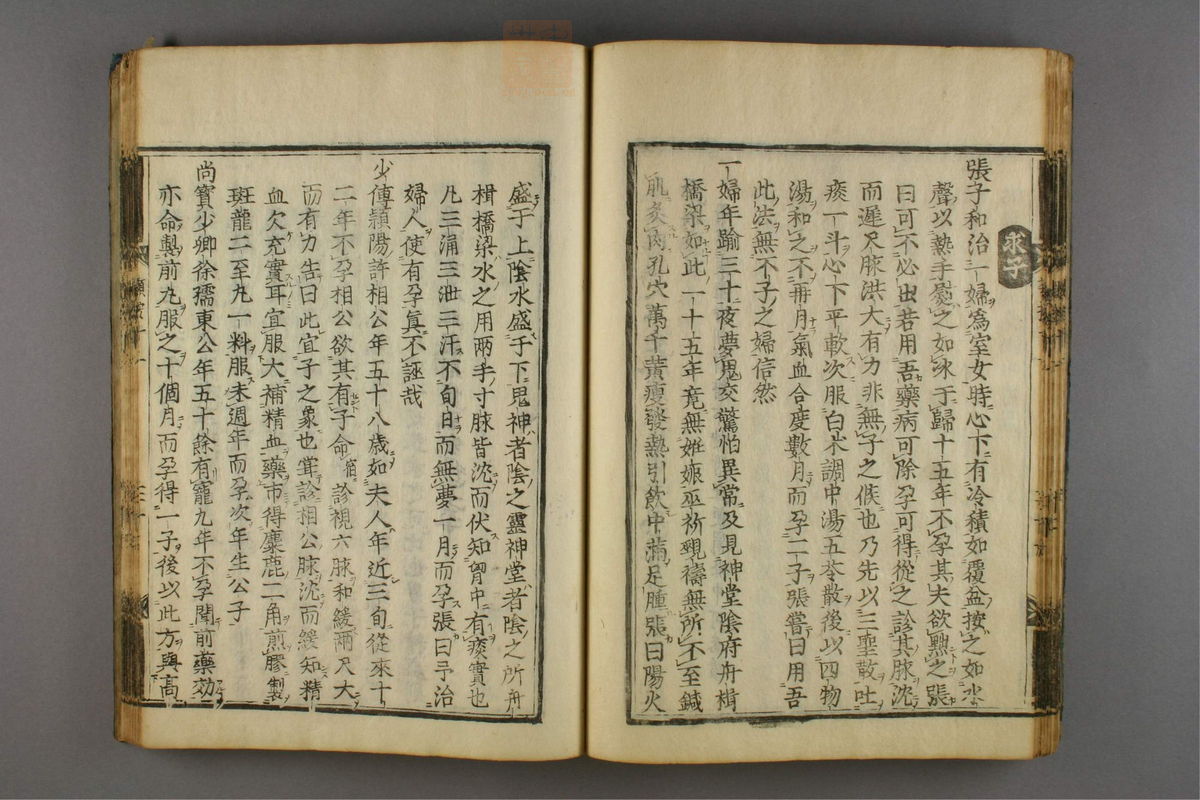 求子
張子和治一婦爲室女時心下有冷積如覆盆按之如水
聲以熱手熨之如冰于歸十五年不孕其夫欲黜之張
曰可不必出若用吾藥病可除孕可得從之診其脉沈
而遲尺脉洪大有力非無子之候也乃先以三聖散吐
痰一斗心下平軟次服白朮調中湯五苓散後以四物
湯和之不再月氣血合度數月而孕二子張嘗曰用吾
此法無不子之婦信然
一婦年踰三十夜夢鬼交驚怕異常及見神堂陰府舟楫
橋梁如此一十五年竟無妊娠巫祈覡禱無所不至鍼
肌灸肉孔穴萬千黃瘦發熱引飲中滿足腫張曰陽火
盛于上陰水盛于下鬼神者陰之靈神堂者陰之所舟
楫橋梁水之用兩手寸脉皆沈而伏知胷中有痰實也
凡三涌三泄三汗不旬日而無夢一月而孕張曰予治
婦人使有孕眞不誣哉
少傅穎陽許相公年五十八歲如夫人年近三旬從來十
二年不孕相公欲其有子命診視六脉和緩兩尺大
而有力告曰此宜子之象也甞診相公脉沈而緩知精
血欠充實耳宜服大補精血藥市得麋鹿二角煎膠製
斑龍二至丸一料服未週年而孕次年生公子
尚寶少卿徐孺東公年五十餘有寵九年不孕聞前藥効
亦命製前丸服之十個月而孕得一子後以此方與高